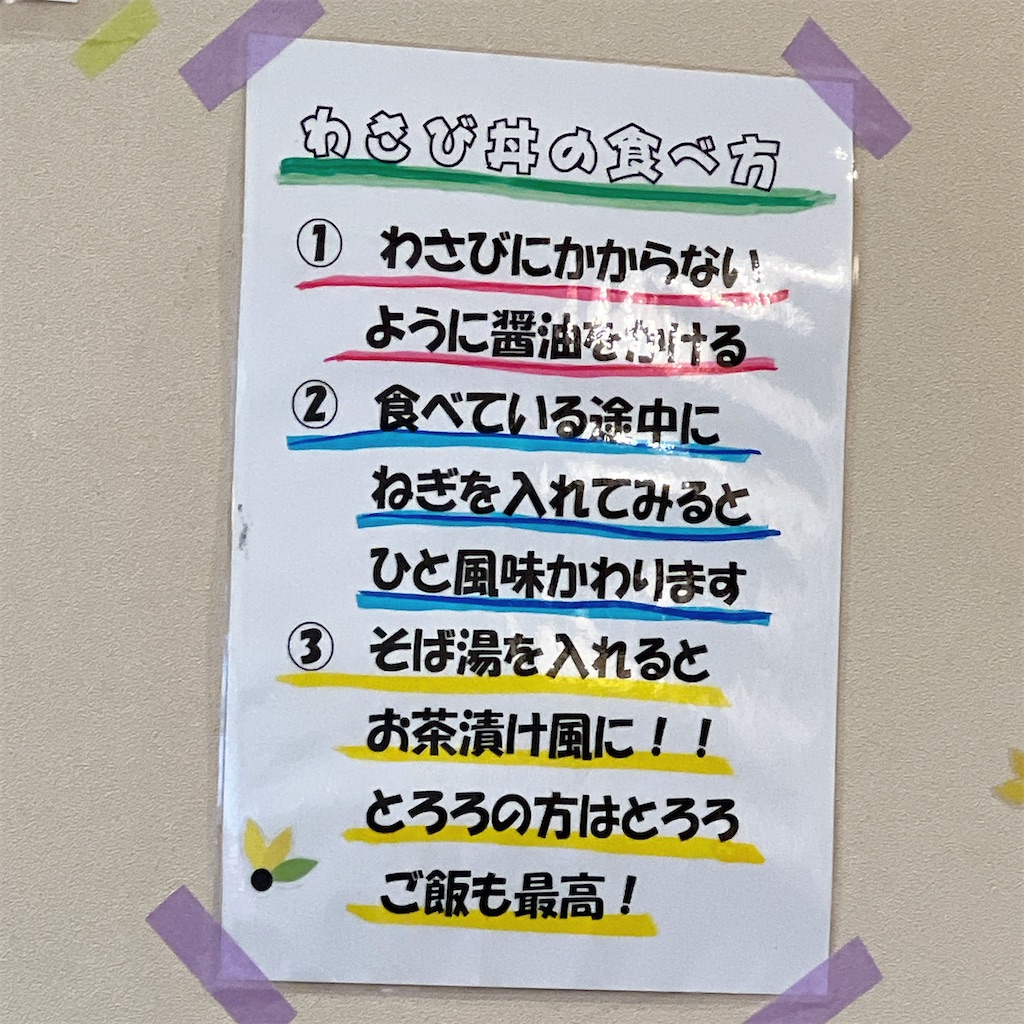 わさび丼の食べ方
① わさびにかからない
ように醤油をかける
② 食べている途中に
ねぎを入れてみると
ひと風味かわります
③ そば湯を入れると
お茶漬け風に！！
とろろの方はとろろ
ご飯も最高！